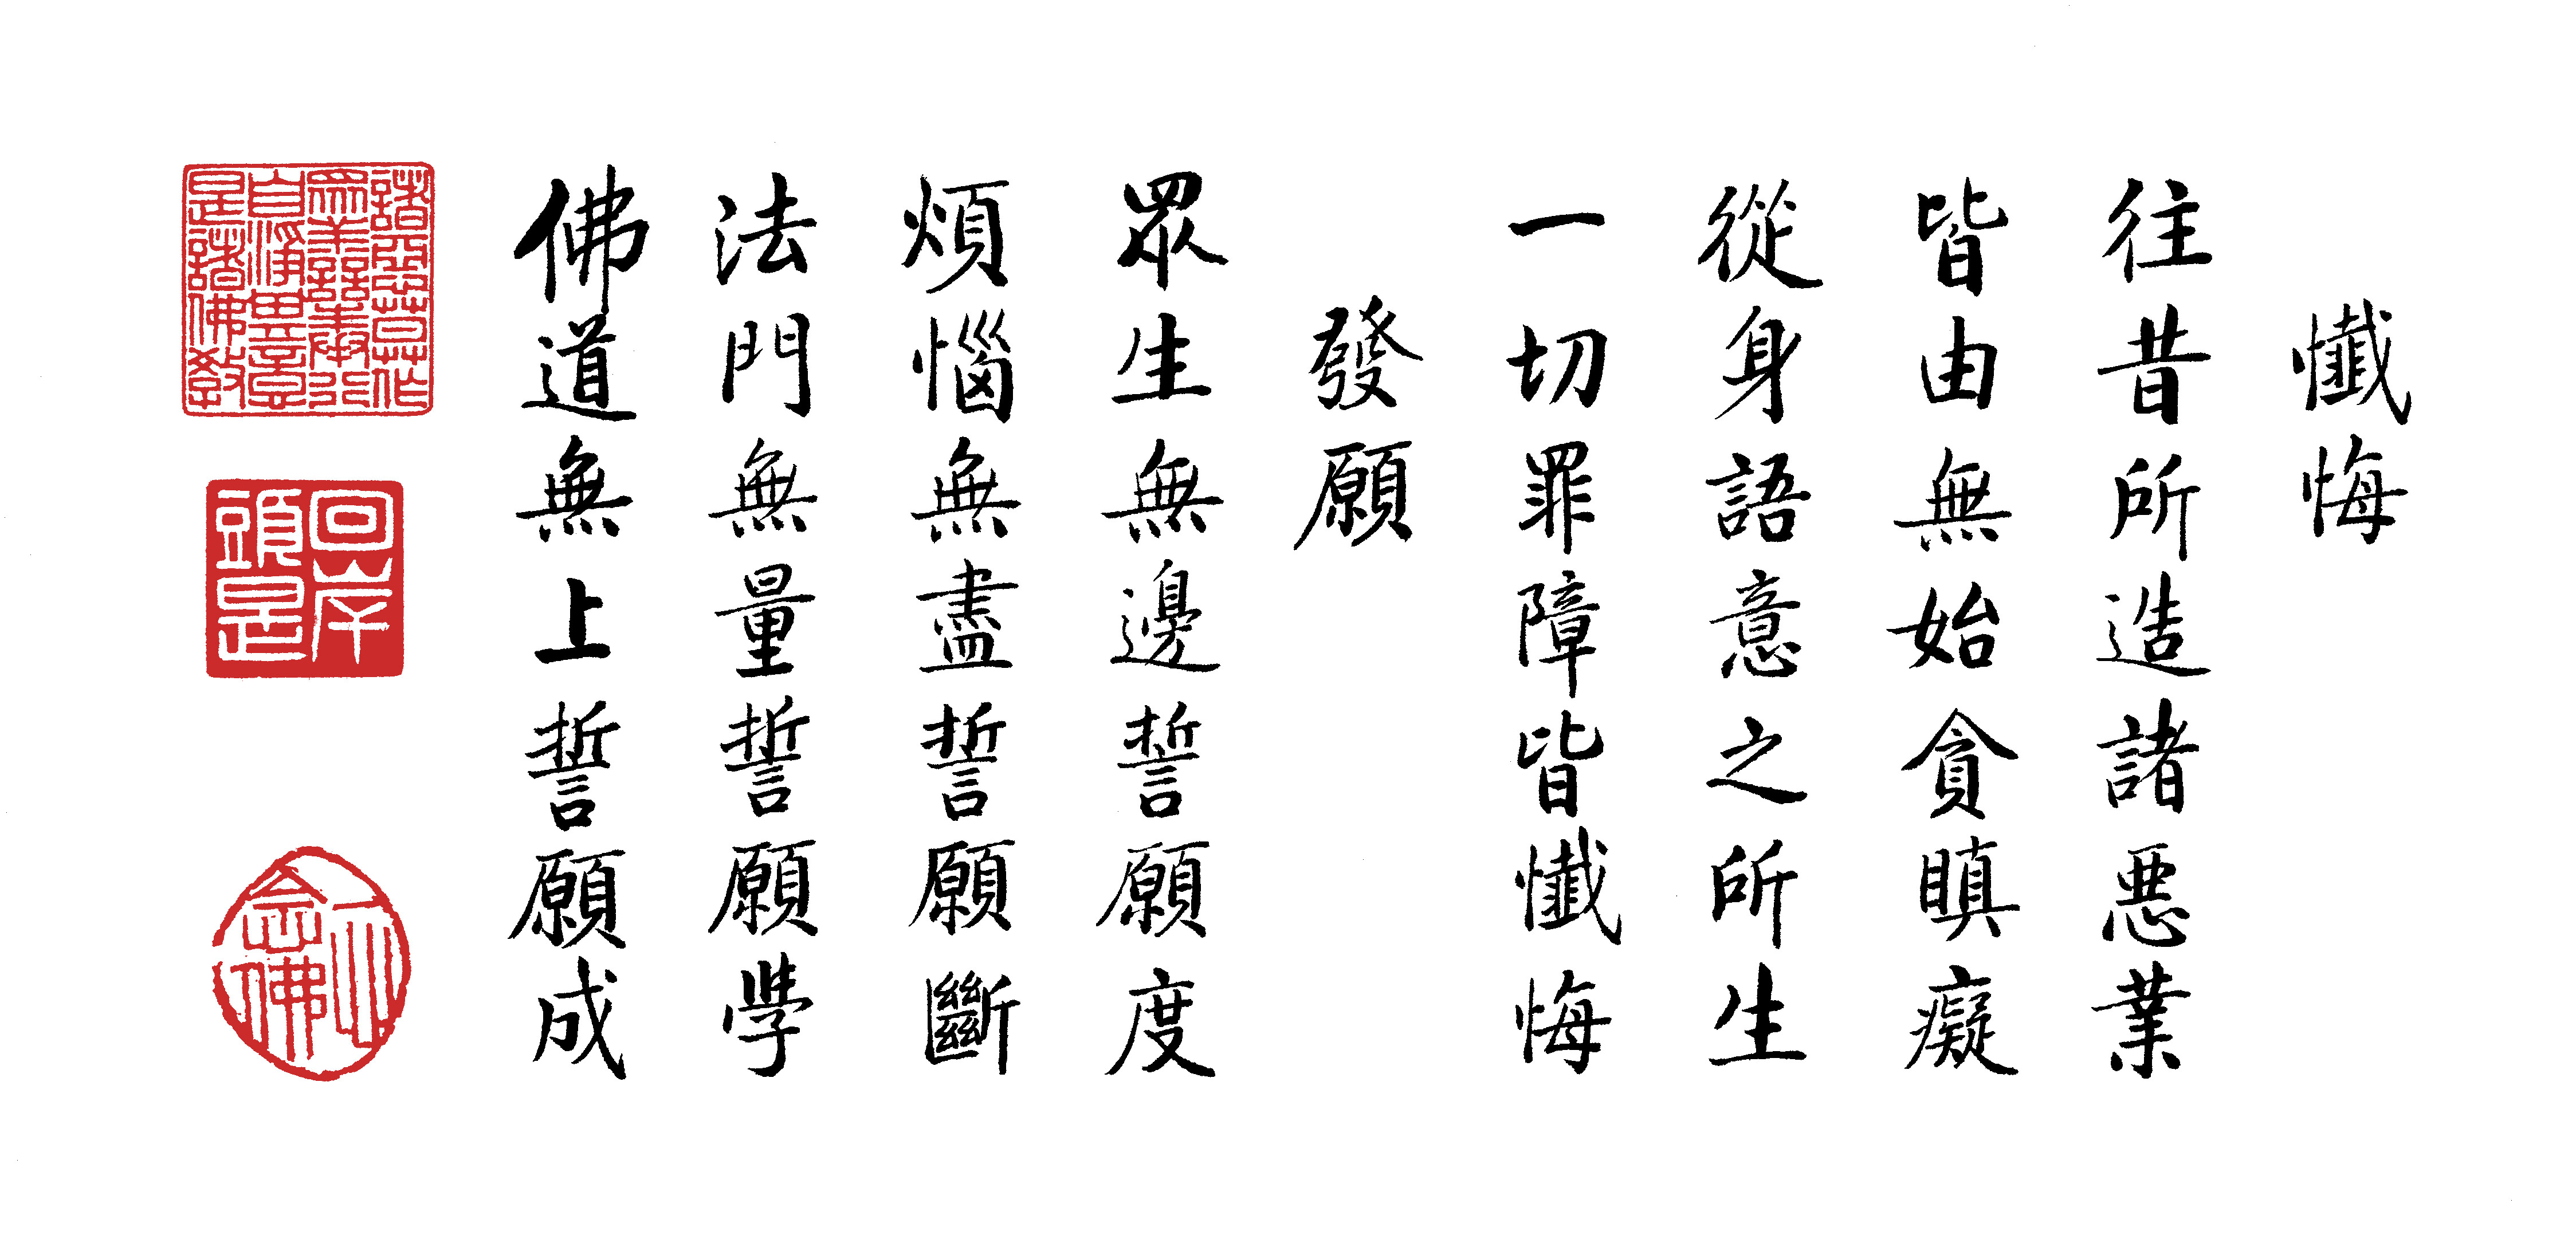 懺悔
往昔所造諸惡業
皆由無始貪瞋癡
從身語意之所生
一切罪障皆懺悔
發願
眾生無邊誓願度
煩惱無盡誓願斷
法門無量誓願學
佛道無上誓願成
諸惡莫作
眾善奉行
自淨其意
是諸佛教
回岸
頭是
念佛